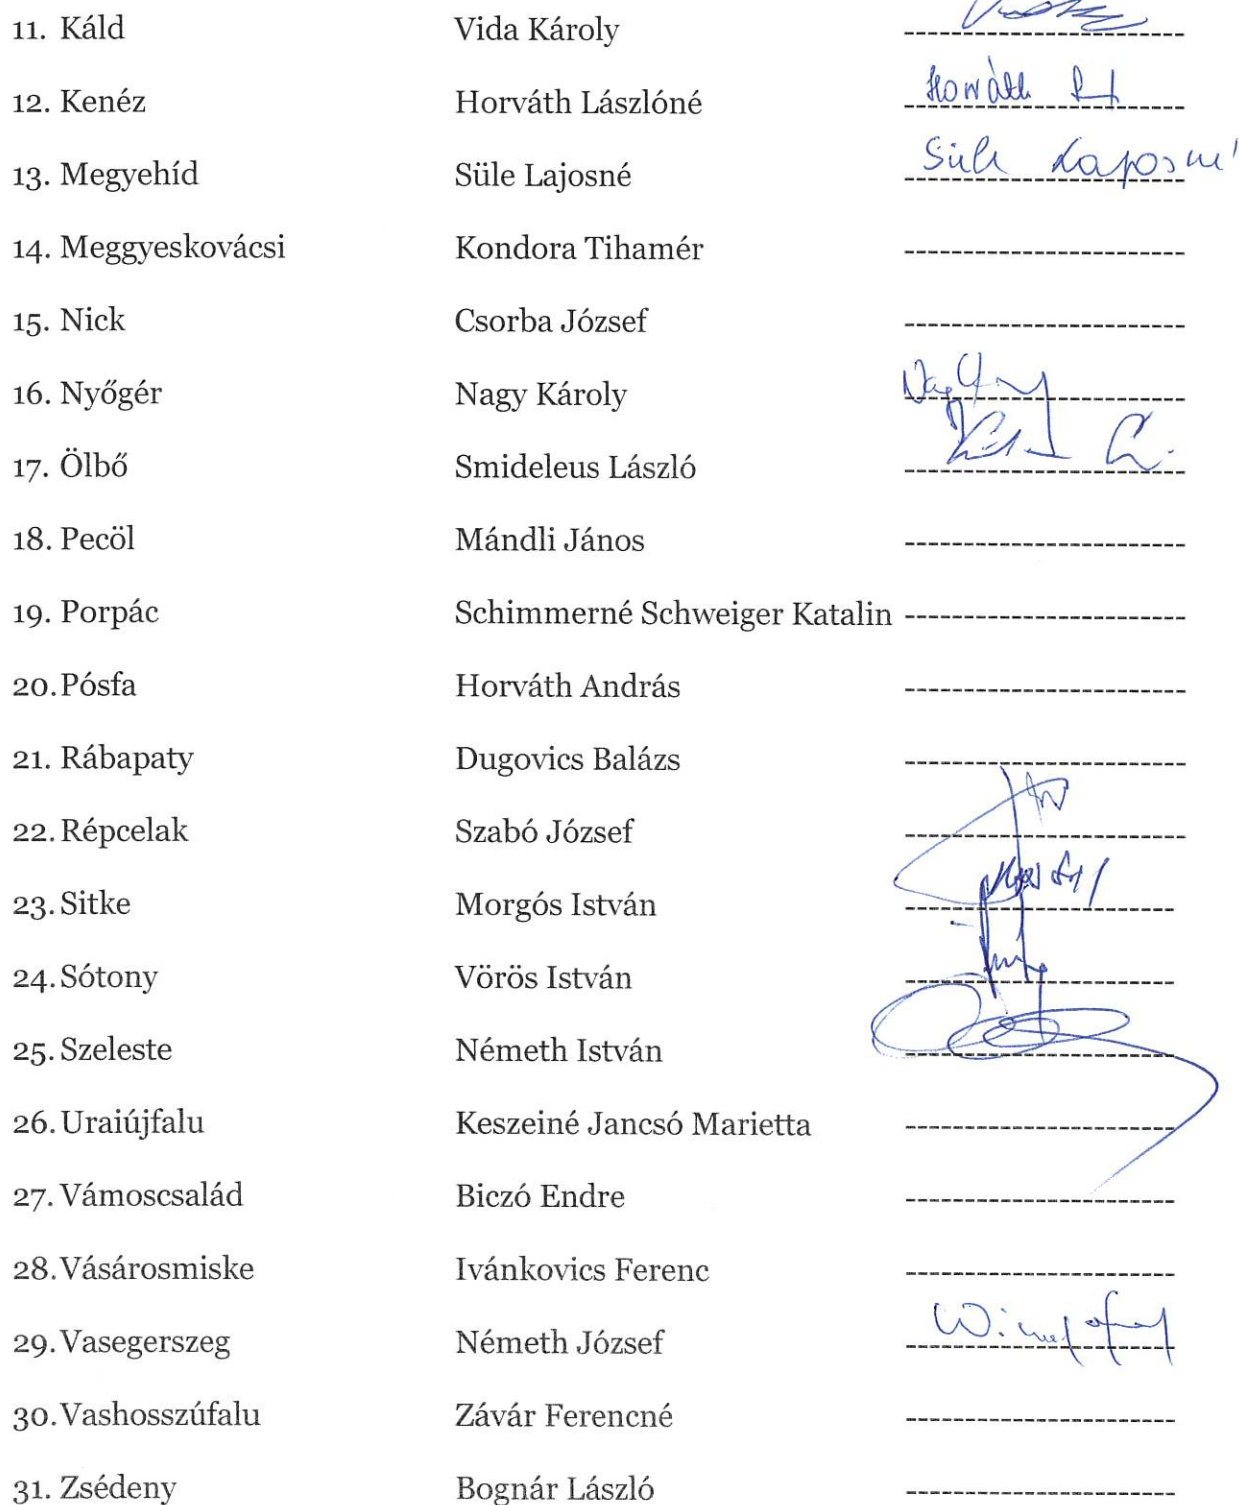 11. Káld Vida Károly
12. Kenéz Horváth Lászlóné Horváth
13. Megyehíd Süle Lajosné Süle Lajosné
14. Meggyeskovácsi Kondora Tihamér
15. Nick Csorba József
16. Nyőgér Nagy Károly
17. Ölbő Smideleus László
18. Pecöl Mándli János
19. Porpác Schimmerné Schweiger Katalin
20. Pósfa Horváth András
21. Rábapaty Dugovics Balázs
22. Répcelak Szabó József
23. Sitke Morgós István
24. Sótony Vörös István
25. Szeleste Németh István
26. Uraiújfalu Keszeiné Jancsó Marietta
27. Vámoscsalád Biczó Endre
28. Vásárosmiske Ivánkovics Ferenc
29. Vasegerszeg Németh József
30. Vashosszúfalu Závár Ferencné
31. Zsédeny Bognár László